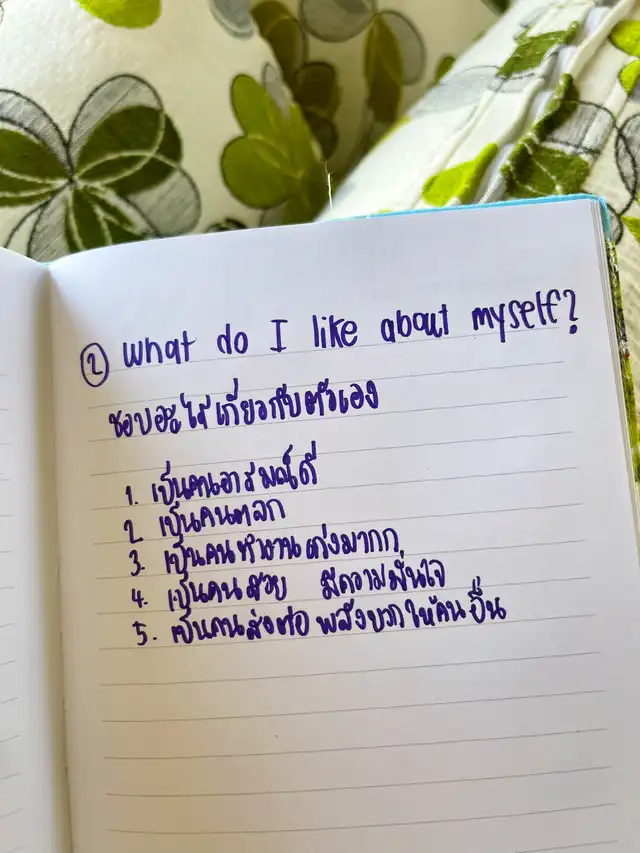 ② What do I like about myself?
ชอบอะไรเกี่ยวกับตัวเอง
1. เป็นคนอารมณ์ดี
2 เป็นคนตลก
3. เป็นคนทำงานเก่งมากก
4. เป็นคนสวย มีความมั่นใจ
5. เป็นคนส่งต่อ พลังบวกให้คนอื่น